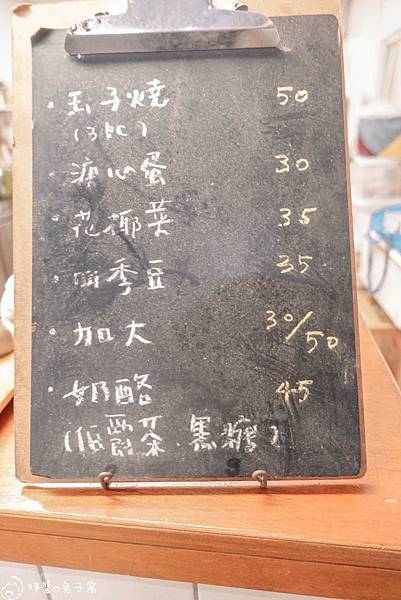 ·玉子燒 50
(3pc)
·溏心蛋 30
·花椰菜 35
·四季豆 35
·加大 30/50
·奶酪 45
(伯爵茶.黑糖)
の兔子窩